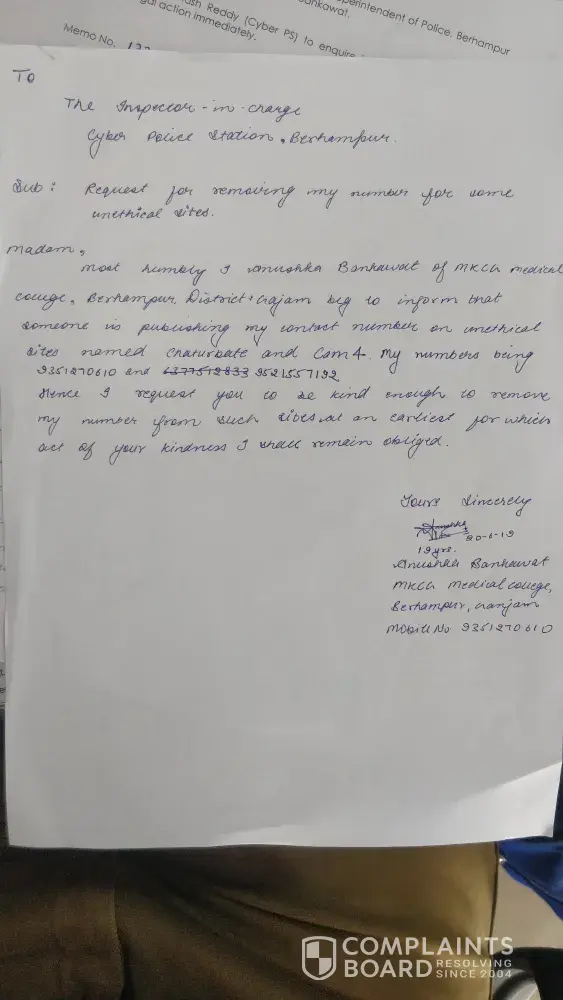 ash Reddy (Cyber PS) to enquire
gal action immediately.
perintendent of Police, Berhampur
ankawat.
Memo No.
To
The Inspector-in-charge
Cyber Police Station, Berhampur.
Sub: Request for removing my number for some
unethical sites.
Madam,
Most humbly I Anushka Bankawat of MKCG medical
college, Berhampur District: Gajam beg to inform that
someone is publishing my contact number on unethical
sites named Chaturbate and Cam4. My numbers being
9351270610 and 6377512833 9521557192
Hence I request you to be kind enough to remove
my number from such sites at an earliest for which
act of your kindness I shall remain obliged.
Yours Sincerely
20-6-19
19yrs.
Anushka Bankawat
MKCG Medical College,
Berhampur, Ganjam
Mobile No 9351270610
COMPLAINTS
BOARD RESOLVING
SINCE 2004